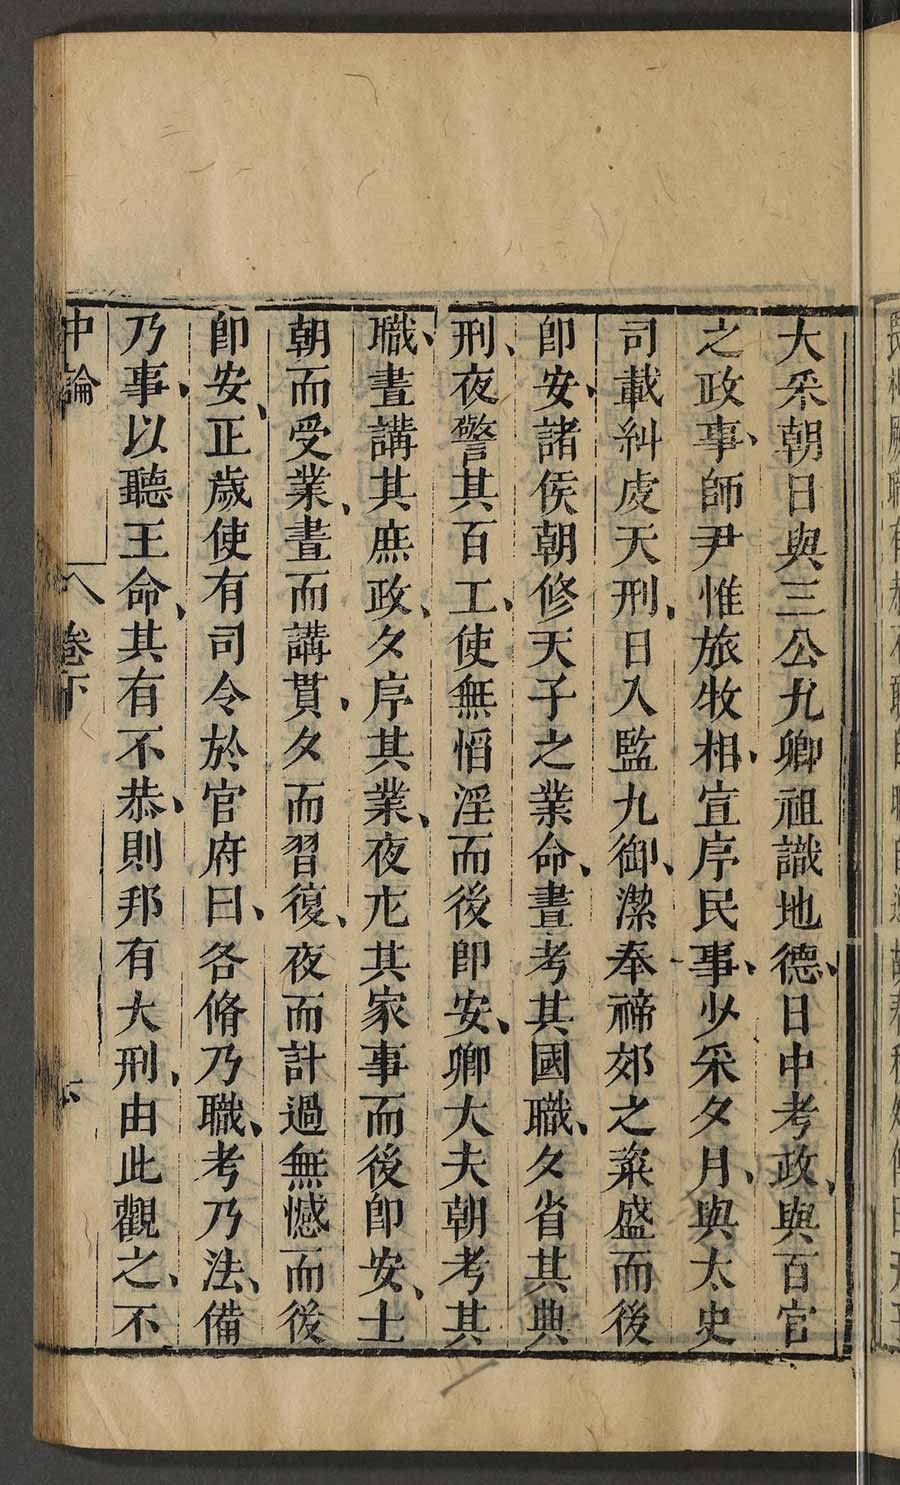 大采朝日與三公九卿祖識地德、日中考政、與百官
之政事、師尹惟旅牧相、宣序民事、少采夕月、與太史
司載糾虔天刑、日入監九御、潔奉禘郊之粢盛而後
卽安、諸侯朝修天子之業命、晝考其國職、夕省其典
刑、夜警其百工、使無慆淫而後卽安、卿大夫朝考其
職、晝講其庶政、夕序其業、夜庀其家事而後卽安、士
朝而受業、晝而講貫、夕而習復、夜而計過無憾而後
卽安、正歲使有司令於官府曰、各脩乃職、考乃法、備
乃事、以聽王命、其有不恭、則邦有大刑、由此觀之、不
中論 卷下